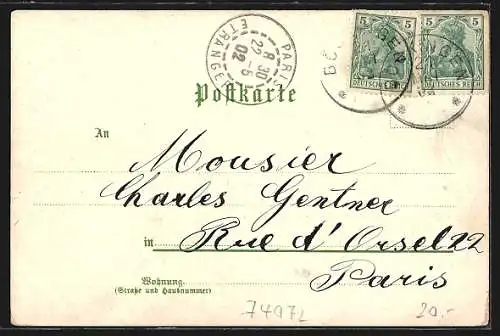 PARIS
8 30
22 5
02
ETRANGER
5
5
DEUTSCHES REICH
DEUTSCHES REICH
Postkarte
An
Mousier
Charles Gentner
in
Rue d'Orsel 22
Paris
Wohnung
(Straße und Hausnummer)
7497L
20.-